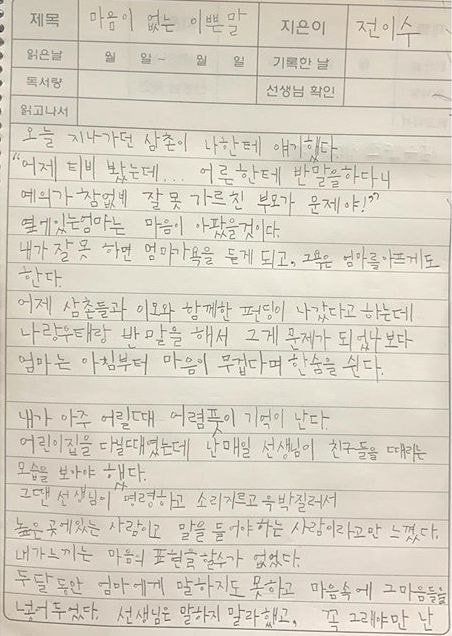 제목 마음이 없는 이쁜말 지은이 전이수
읽은날 월 일 ~ 월 일 기록한 날
독서량 선생님 확인
읽고나서
오늘 지나가던 삼촌이 나한테 얘기했다.
"어제 티비 봤는데... 어른한테 반말을하다니
예의가 참없네 잘못 가르친 부모가 문제야!"
옆에있는엄마는 마음이 아팠을것이다.
내가 잘못 하면 엄마가욕을 듣게 되고, 그욕은 엄마를아프게도
한다.
어제 삼촌들과 이모와 함께한 펀딩이 나갔다고 하는데
나랑우태랑 반말을 해서 그게 문제가 되었나보다
엄마는 아침부터 마음이 무겁다며 한숨을 쉰다.
내가 아주 어릴때 어렴풋이 기억이 난다.
어린이집을 다닐때였는데 난매일 선생님이 친구들을 때리는
모습을 보아야 했다.
그땐 선생님이 명령하고 소리지르고 윽박질러서
높은곳에있는 사람이고 말을 들어야하는 사람이라고만 느꼈다.
내가느끼는 마음의 표현을할수가 없었다.
두달동안 엄마에게 말하지도 못하고 마음속에 그마음들을
넣어두었다. 선생님은 말하지 말라했고, 꼭 그래야만 난